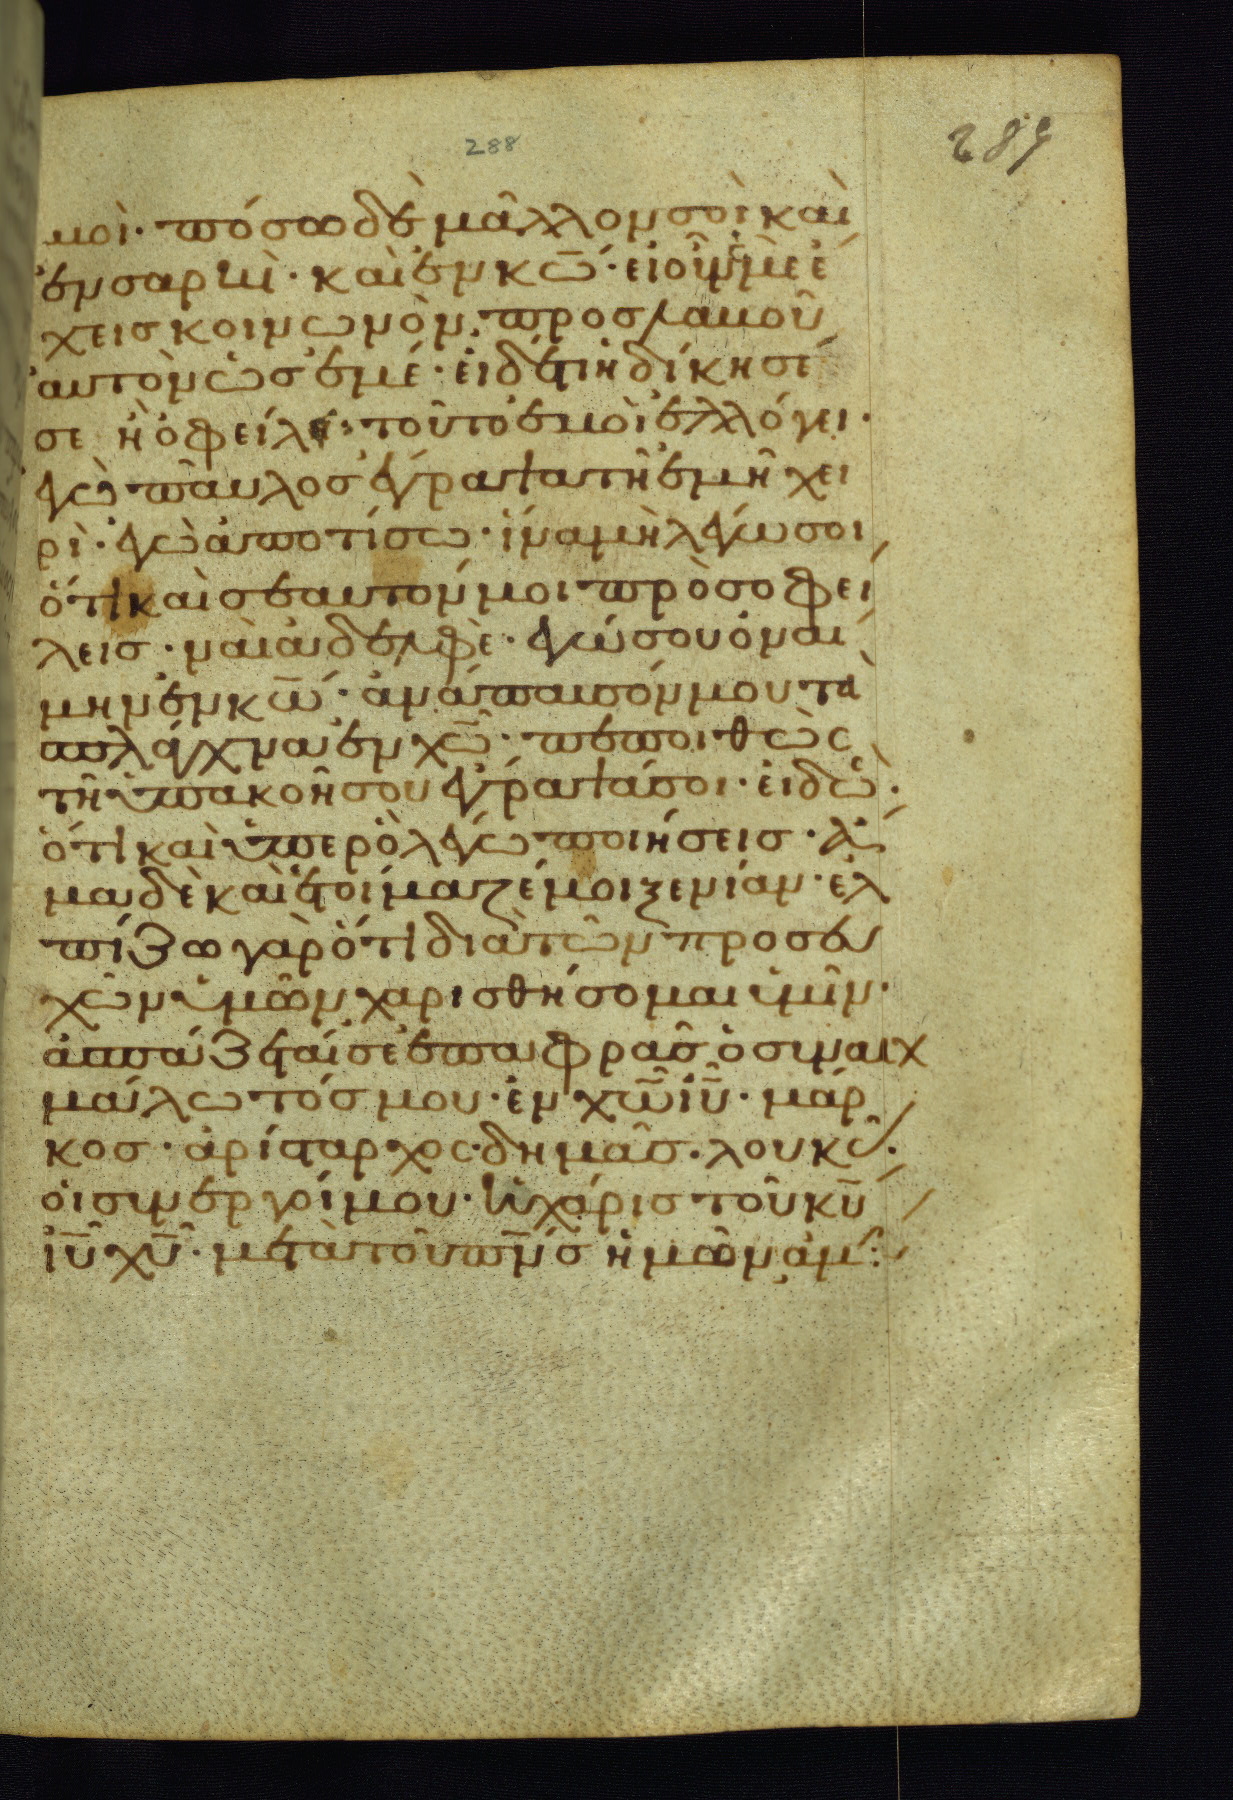 288
289
μοὶ· πόσω δὲ μᾶλλον σοὶ καὶ
ἐν σαρκὶ· καὶ ἐν κω̅· εἰ οὖν ἐμὲ ἔ
χεις κοινωνὸν, προσλαβοῦ
αὐτὸν ὡς ἐμέ· εἰ δέ τι ἠδίκησέ
σε ἢ ὀφείλει· τοῦτο ἐμοὶ ἐλλόγει·
ἐγὼ παῦλος ἔγραψα τῆ ἐμῆ χει
ρὶ· ἐγὼ ἀποτίσω· ἵνα μὴ λέγω σοι
ὅτι καὶ σεαυτόν μοι πρὸσοφεί
λεις· ναὶ ἀδελφὲ· ἐγώ σου ὀναί
μην ἐν κω̅· ἀνάπαυσόν μου τὰ
σπλάγχνα ἐν χω̅· πεποιθὼς
τῆ ὑπακοῆ σου ἔγραψά σοι· εἰδὼς
ὅτι καὶ ὑπερ ὃ λέγω ποιήσεις· ἅ
μα δὲ καὶ ἑτοίμαζέ μοι ξενίαν· ἐλ
πίζω γὰρ ὅτι διὰ τῶν προσευ
χῶν ὑμῶν χαρισθήσομαι ὑμῖν·
ἀσπάζεταί σε ἐπαφρᾶς ὁ συναιχ
μάλωτός μου· ἐν χω̅ ιυ̅· μάρ
κος· ἀρίσταρχος· δημᾶς· λουκᾶς·
οἱ συνεργοί μου· ἡ χάρις τοῦ κυ̅
ιυ̅ χυ̅· μετὰ τοῦ πν̅ς ἡμῶν, ἀμήν: